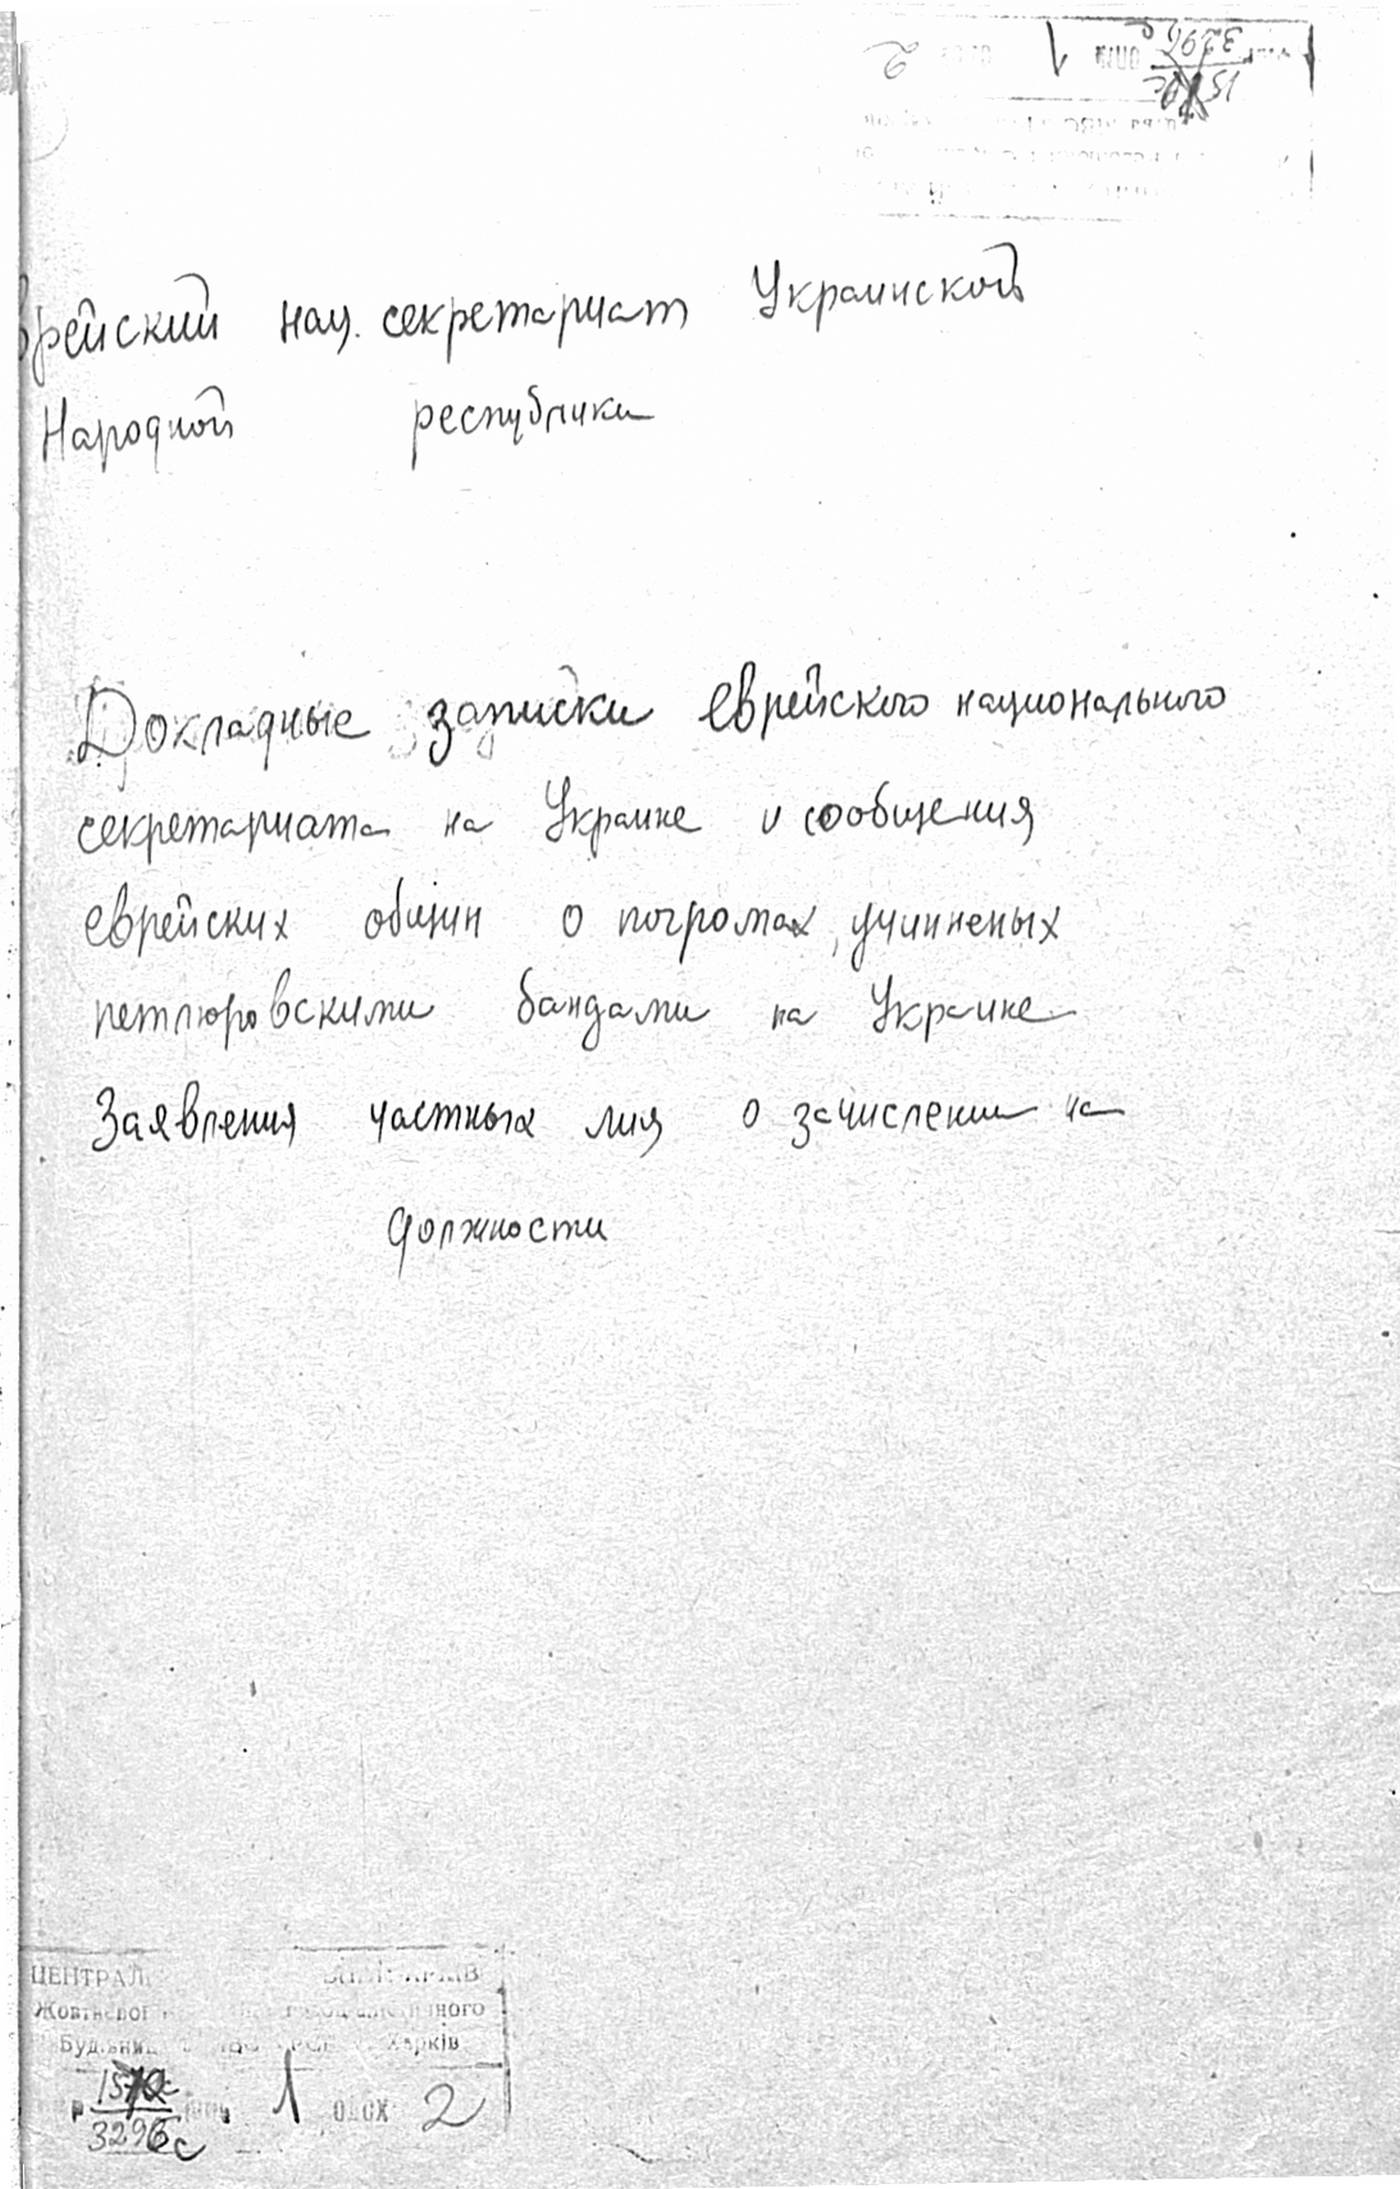 врейский нац. секретариат Украинской
Народной республики
Докладные записки еврейского национального
секретариата на Украине и сообщения
еврейских общин о погромах, учинненых
петлюровскими бандами на Украине
Заявления частных лиц о зачислении на
должности
ЦЕНТРАЛ
Жовтневої
Харків
3296с
1 2